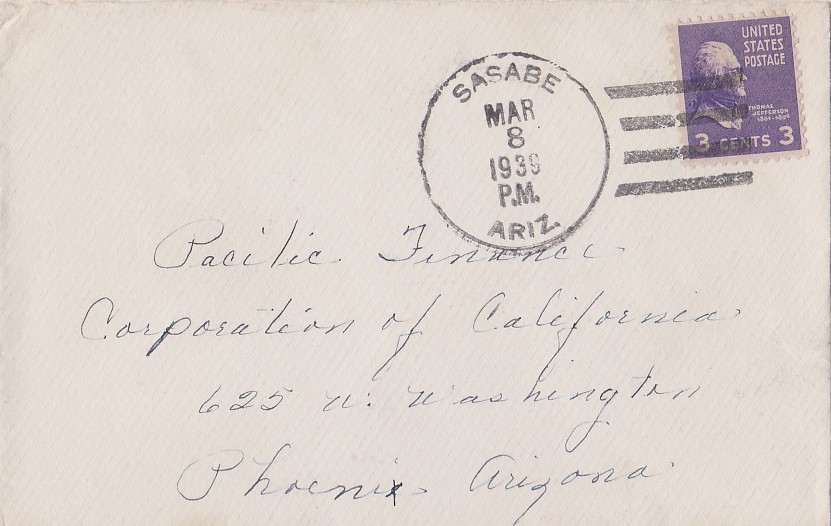 UNITED
STATES
POSTAGE
THOMAS
JEFFERSON
1801-1809
3 CENTS 3
SASABE
MAR
8
1939
P.M.
ARIZ.
Pacific Finance
Corporation of California
625 W. Washington
Phoenix Arizona